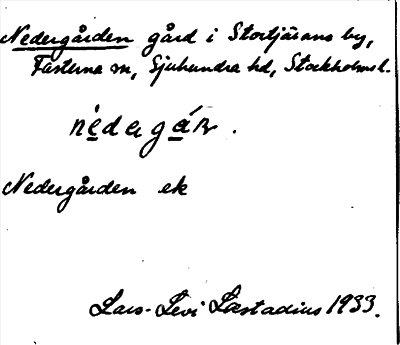 Nedergården gård i Stortjärans by,
Fasterna sn, Sjuhundra hd, Stockholms l.
nedergår.
Nedergården ek
Lars-Levi Læstadius 1933.